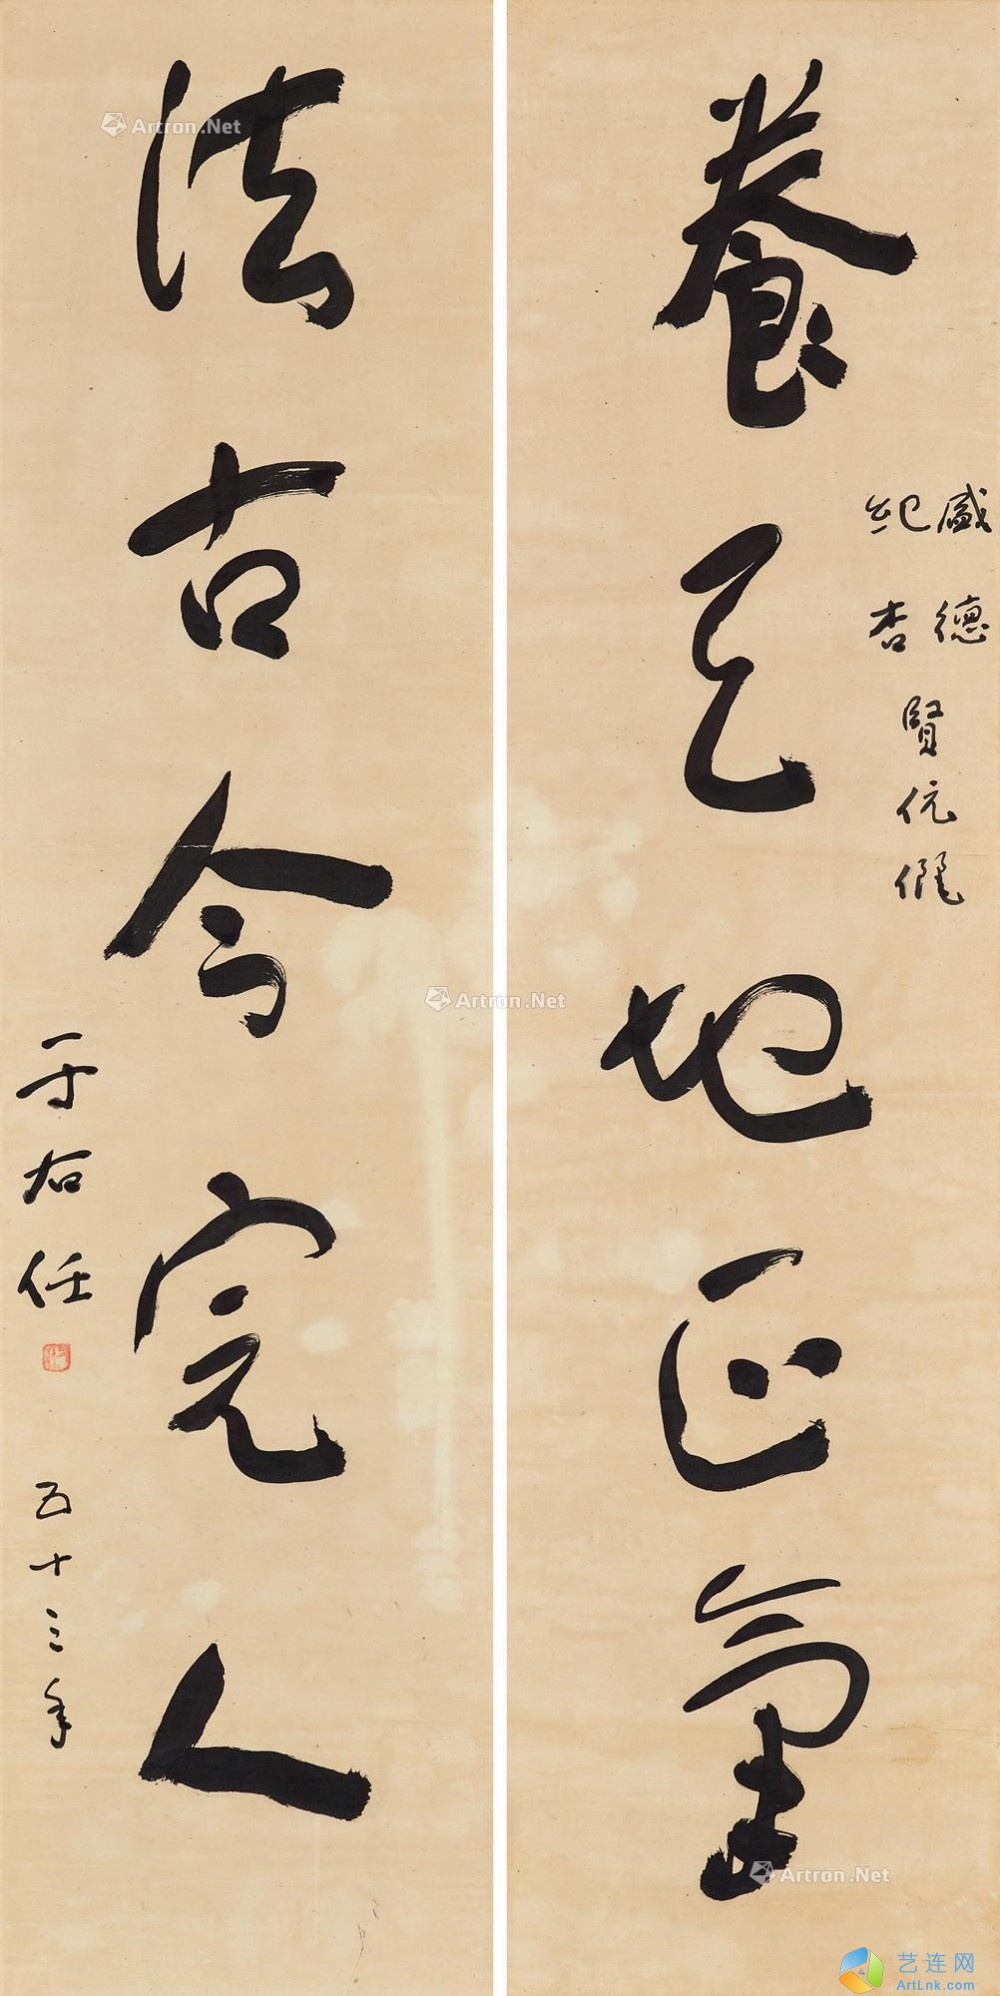 養天地正氣
盛德
紀杏
賢伉儷
法古今完人
于右任
五十三年
Artron.Net
Artron.Net
Artron.Net
艺连网
ArtLnk.com